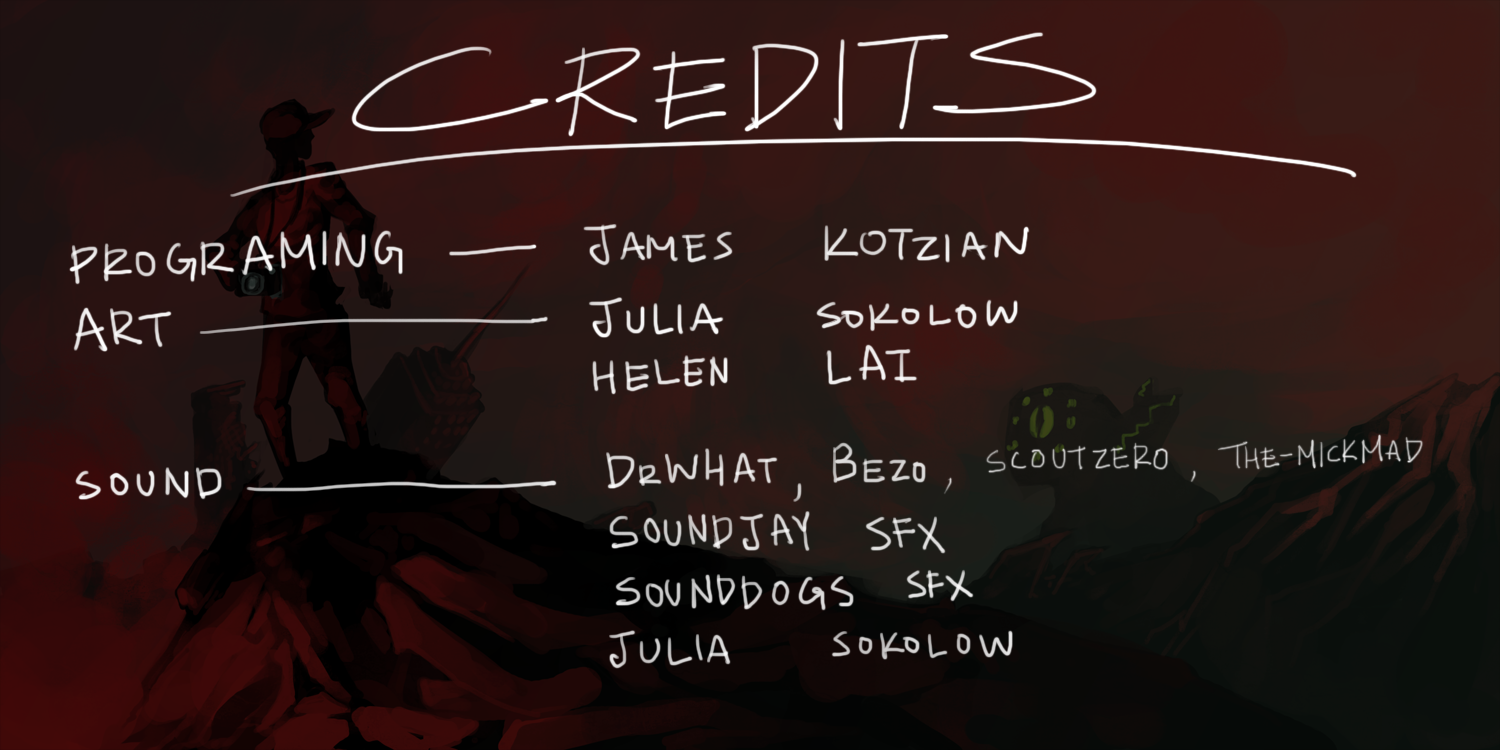 CREDITS
PROGRAMING — JAMES KOTZIAN
ART — JULIA SOKOLOW
HELEN LAI
SOUND — DRWHAT, BEZO, SCOUTZERO, THE-MICKMAD
SOUNDJAY SFX
SOUNDDOGS SFX
JULIA SOKOLOW